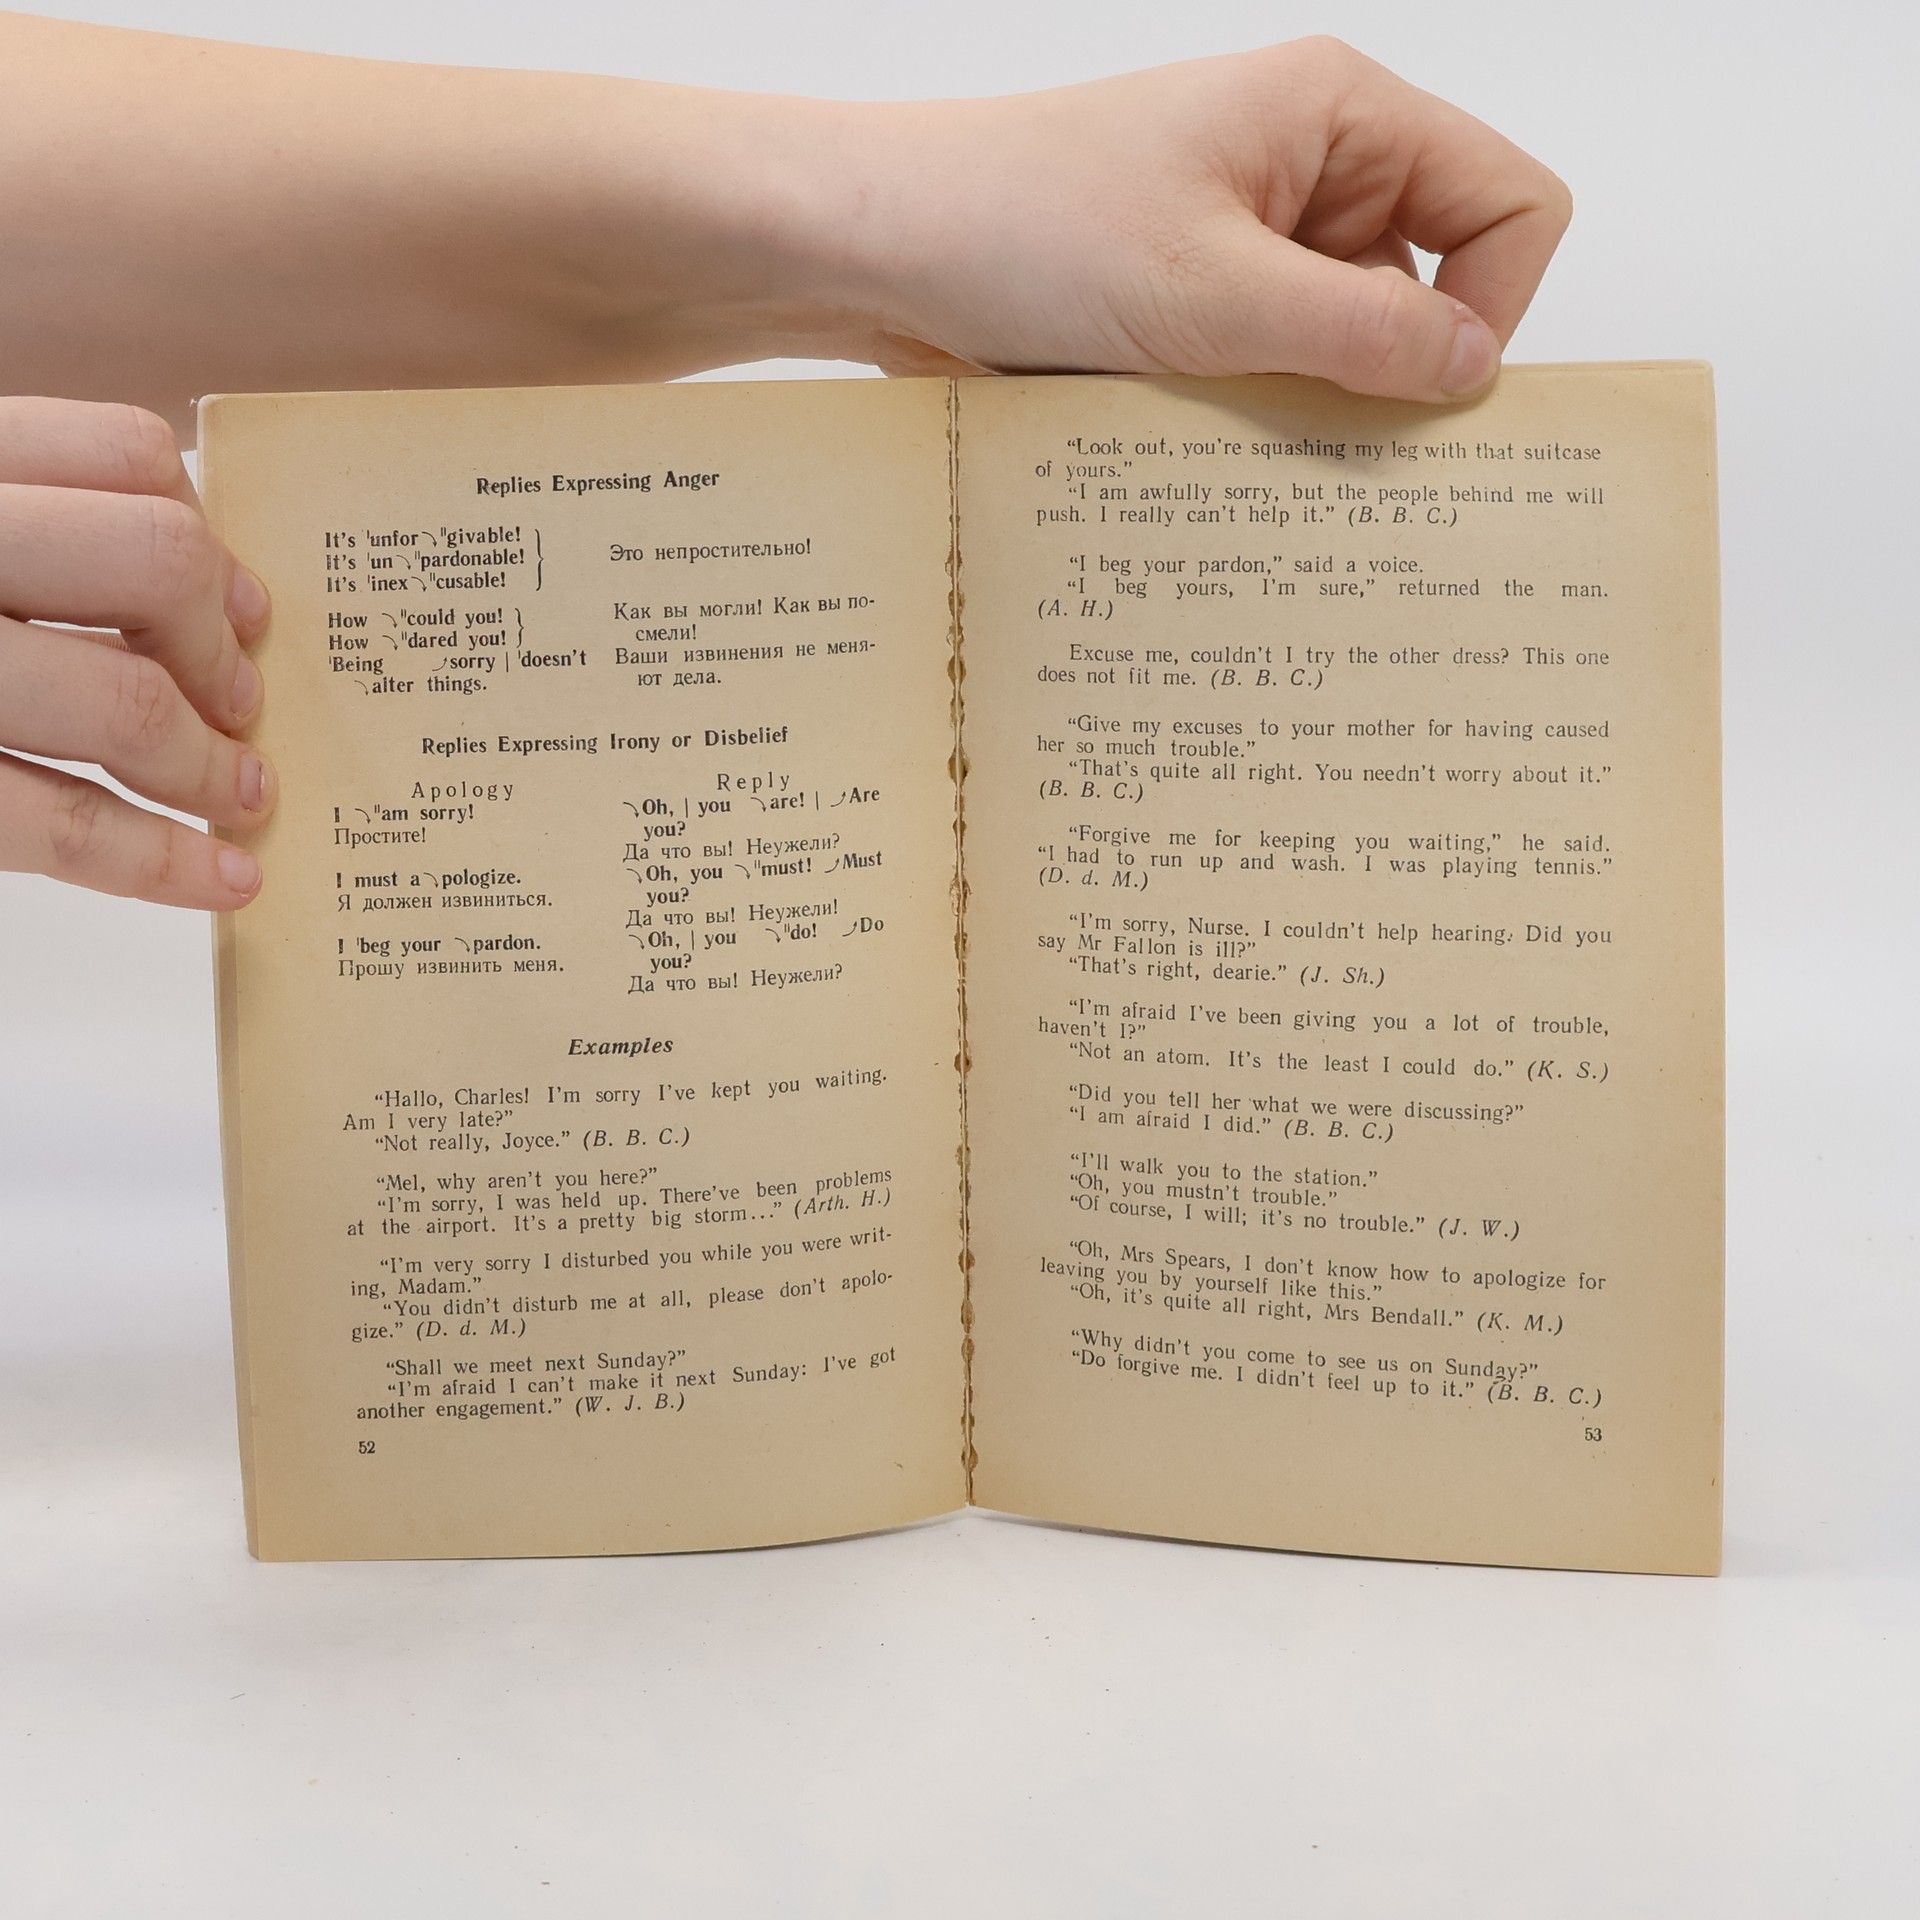 Replies Expressing Anger
It's 'unfor⤵"givable!
It's 'un⤵"pardonable!
It's 'inex⤵"cusable!
Это непростительно!
How ⤵"could you!
How ⤵"dared you!
Как вы могли! Как вы по-
смели!
'Being ⤴sorry | 'doesn't
⤵alter things.
Ваши извинения не меня-
ют дела.
Replies Expressing Irony or Disbelief
Apology
I ⤵"am sorry!
Простите!
I must a⤵pologize.
Я должен извиниться.
I 'beg your ⤵pardon.
Прошу извинить меня.
Reply
⤵Oh, | you ⤵are! | ⤴Are
you?
Да что вы! Неужели?
⤵Oh, you ⤵"must! ⤴Must
you?
Да что вы! Неужели!
⤵Oh, | you ⤵"do! ⤴Do
you?
Да что вы! Неужели?
Examples
“Hallo, Charles! I'm sorry I've kept you waiting.
Am I very late?”
“Not really, Joyce.” (B. B. C.)
“Mel, why aren't you here?”
“I'm sorry, I was held up. There've been problems
at the airport. It's a pretty big storm...” (Arth. H.)
“I'm very sorry I disturbed you while you were writ-
ing, Madam.”
“You didn't disturb me at all, please don't apolo-
gize.” (D. d. M.)
“Shall we meet next Sunday?”
“I'm afraid I can't make it next Sunday: I've got
another engagement.” (W. J. B.)
52
“Look out, you're squashing my leg with that suitcase
of yours.”
“I am awfully sorry, but the people behind me will
push. I really can't help it.” (B. B. C.)
“I beg your pardon,” said a voice.
“I beg yours, I'm sure,” returned the man.
(A. H.)
Excuse me, couldn't I try the other dress? This one
does not fit me. (B. B. C.)
“Give my excuses to your mother for having caused
her so much trouble.”
“That's quite all right. You needn't worry about it.”
(B. B. C.)
“Forgive me for keeping you waiting,” he said.
“I had to run up and wash. I was playing tennis.”
(D. d. M.)
“I'm sorry, Nurse. I couldn't help hearing. Did you
say Mr Fallon is ill?”
“That's right, dearie.” (J. Sh.)
“I'm afraid I've been giving you a lot of trouble,
haven't I?”
“Not an atom. It's the least I could do.” (K. S.)
“Did you tell her what we were discussing?”
“I am afraid I did.” (B. B. C.)
“I'll walk you to the station.”
“Oh, you mustn't trouble.”
“Of course, I will; it's no trouble.” (J. W.)
“Oh, Mrs Spears, I don't know how to apologize for
leaving you by yourself like this.”
“Oh, it's quite all right, Mrs Bendall.” (K. M.)
“Why didn't you come to see us on Sunday?”
“Do forgive me. I didn't feel up to it.” (B. B. C.)
53